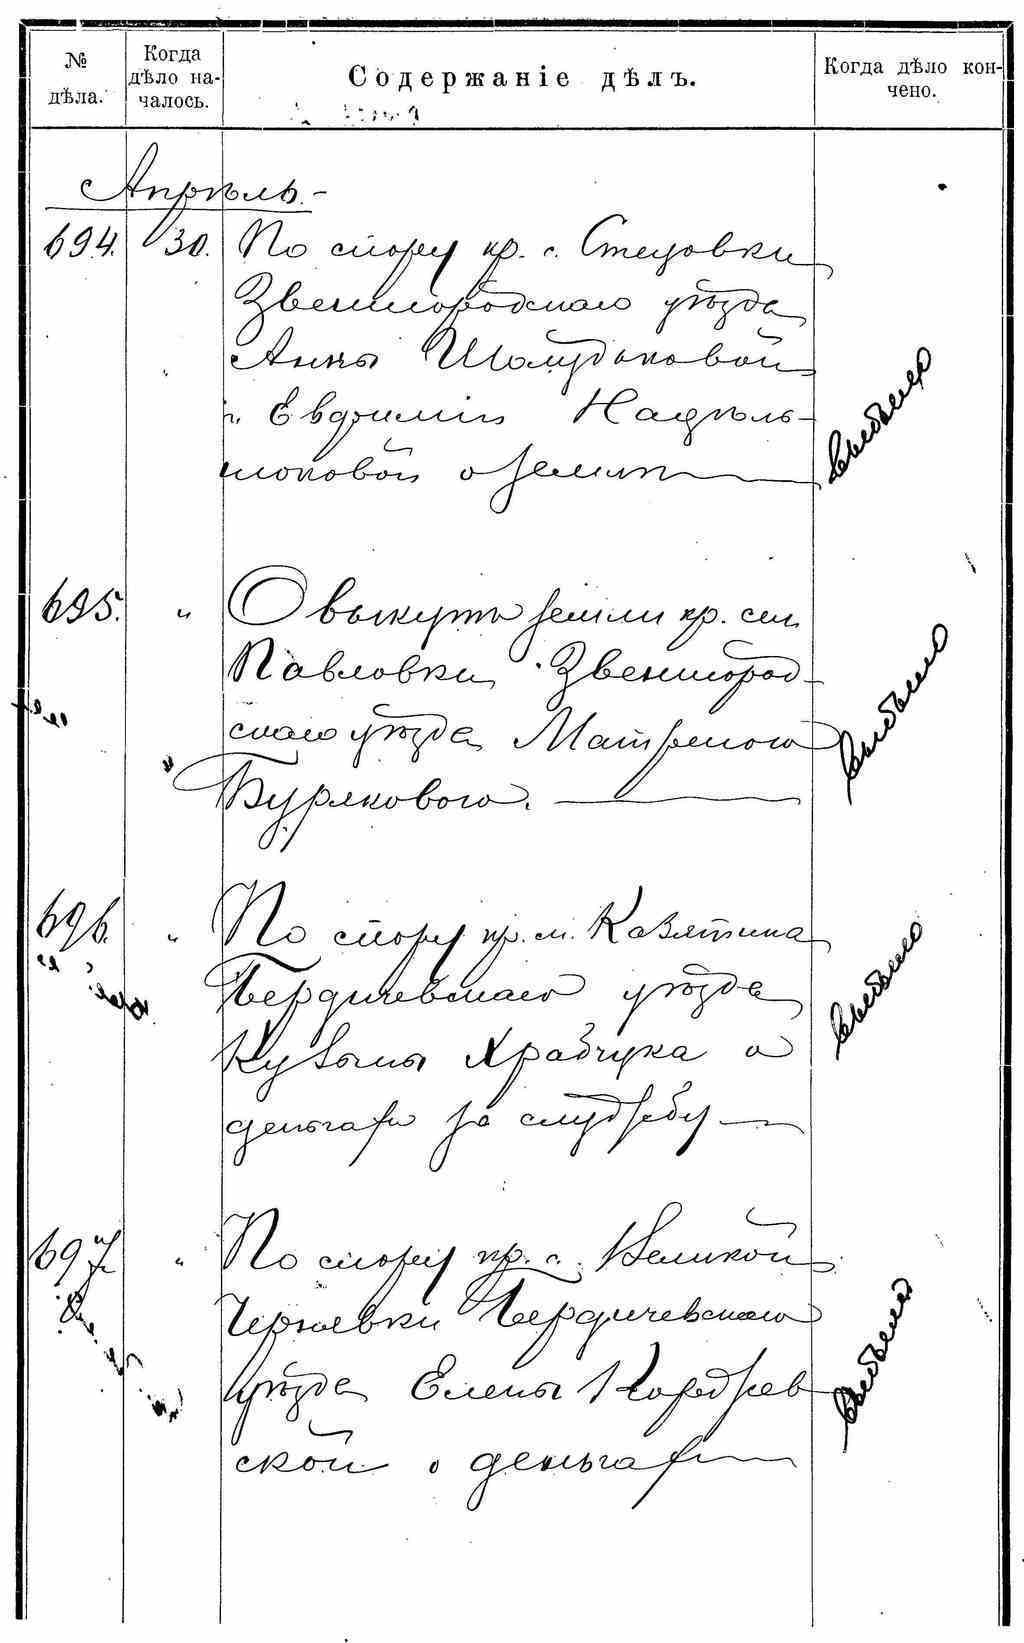 № дѣла.
Когда дѣло началось.
Содержаніе дѣлъ.
Когда дѣло кончено.
Апрѣль.
694. 30. По спору кр. с. Стецовки
Звенигородскаго уѣзда
Анны Шолудьковой
и Евфиміи
о землѣ
выбыло
695. " О выкупѣ земли кр. сел.
Павловки Звенигород-
скаго уѣзда Матреною
Буряковою.
выбыло
696. " По спору кр. м. Казятина
Бердичевскаго уѣзда
Кузьмы Храбчука о
деньгах за службу
выбыло
697. " По спору кр. с. Великой
Чернявки Бердичевскаго
уѣзда Елены Коржев
ской о деньгах
выбыло